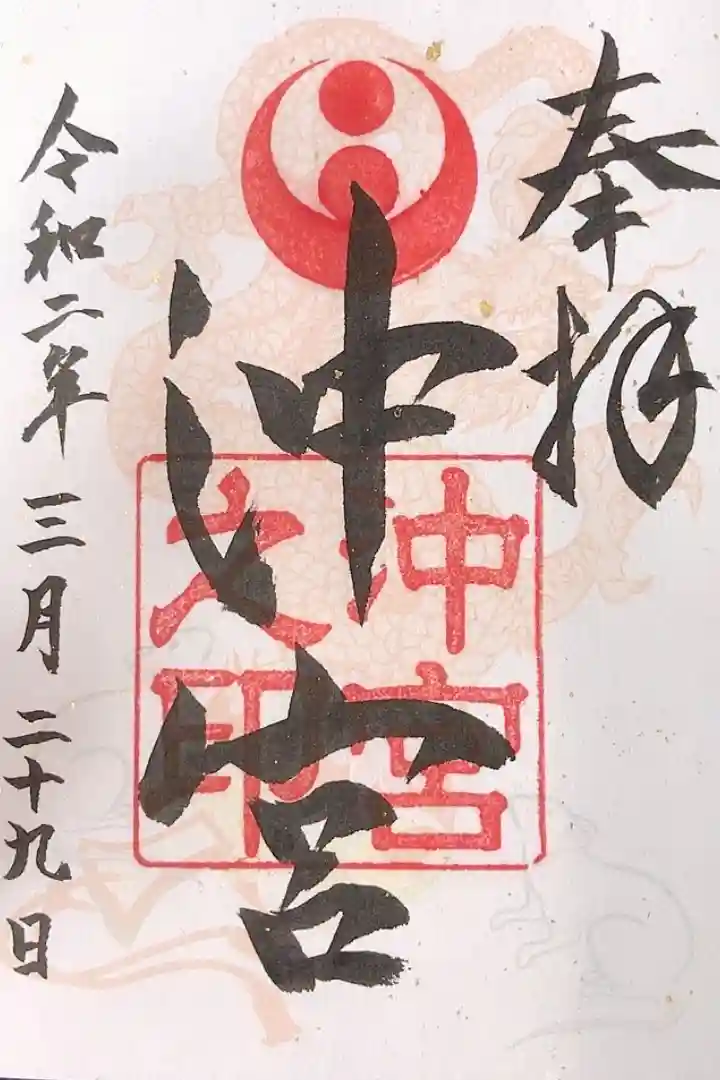 奉拝
沖宮
沖宮
之印
令和二年三月二十九日